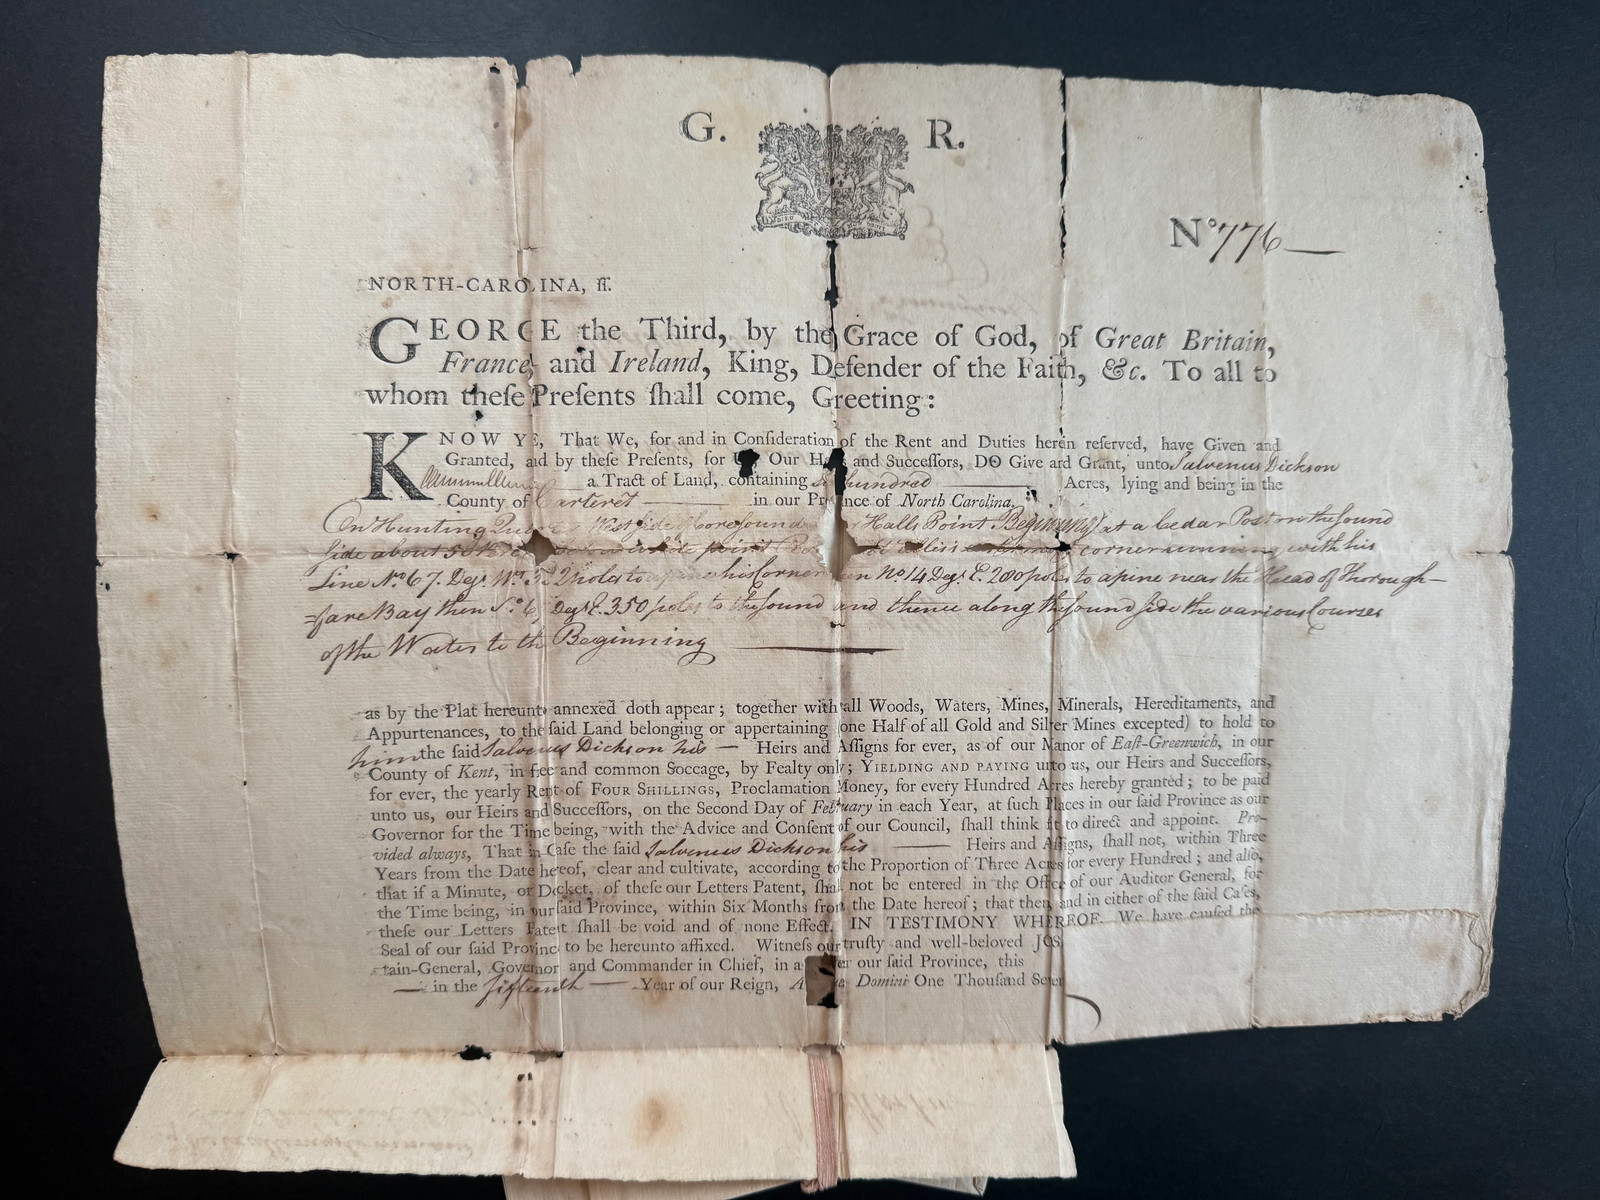 G. R.
No 776
NORTH-CAROLINA, ſſ.
GEORGE the Third, by the Grace of God, of Great Britain,
France, and Ireland, King, Defender of the Faith, &c. To all to
whom theſe Preſents ſhall come, Greeting:
KNOW YE, That We, for and in Conſideration of the Rent and Duties herein reſerved, have Given and
Granted, and by theſe Preſents, for Us, Our and Succeſſors, DO Give and Grant, unto Salvenus Dickson
a Tract of Land, containing hundred Acres, lying and being in the
County of Carteret in our Province of North Carolina,
On Hunting West side of Coresound Halls Point Beginning at a Cedar Post on the sound
side about 50 point corner running with his
Line No. 67. Degs. Wt. to a pine his Corner No 14 Degs. E. 200 poles to a pine near the Head of Thorough-
=fare Bay then So. Degs E. 350 poles to the sound and thence along the sound side the various Courses
of the Water to the Beginning
as by the Plat hereunto annexed doth appear; together with all Woods, Waters, Mines, Minerals, Hereditaments, and
Appurtenances, to the ſaid Land belonging or appertaining (one Half of all Gold and Silver Mines excepted) to hold to
him the ſaid Salvenus Dickson his — Heirs and Aſſigns for ever, as of our Manor of Eaſt-Greenwich, in our
County of Kent, in free and common Soccage, by Fealty only; YIELDING AND PAYING unto us, our Heirs and Succeſſors,
for ever, the yearly Rent of FOUR SHILLINGS, Proclamation Money, for every Hundred Acres hereby granted; to be paid
unto us, our Heirs and Succeſſors, on the Second Day of February in each Year, at ſuch Places in our ſaid Province as our
Governor for the Time being, with the Advice and Conſent of our Council, ſhall think fit to direct and appoint. Pro-
vided always, That in Caſe the ſaid Salvenus Dickson his — Heirs and Aſſigns, ſhall not, within Three
Years from the Date hereof, clear and cultivate, according to the Proportion of Three Acres for every Hundred; and alſo,
that if a Minute, or Docket, of theſe our Letters Patent, ſhall not be entered in the Office of our Auditor General, for
the Time being, in our ſaid Province, within Six Months from the Date hereof; that then, and in either of the ſaid Caſes,
theſe our Letters Patent ſhall be void and of none Effect. IN TESTIMONY WHEREOF We have cauſed the
Seal of our ſaid Province to be hereunto affixed. Witneſs our truſty and well-beloved JOS
tain-General, Governor and Commander in Chief, in our ſaid Province, this
— in the fifteenth — Year of our Reign, Domini One Thouſand Seven